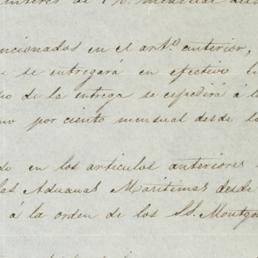 de 1 % mensual des
ncionados en el art.º anterior,
se entregará en efectivo
de la entrega se espedirá á l
no por ciento mensual desde l
do en los articulos anteriores
las Aduanas Maritimas desde
á la orden de los SS. Montgo